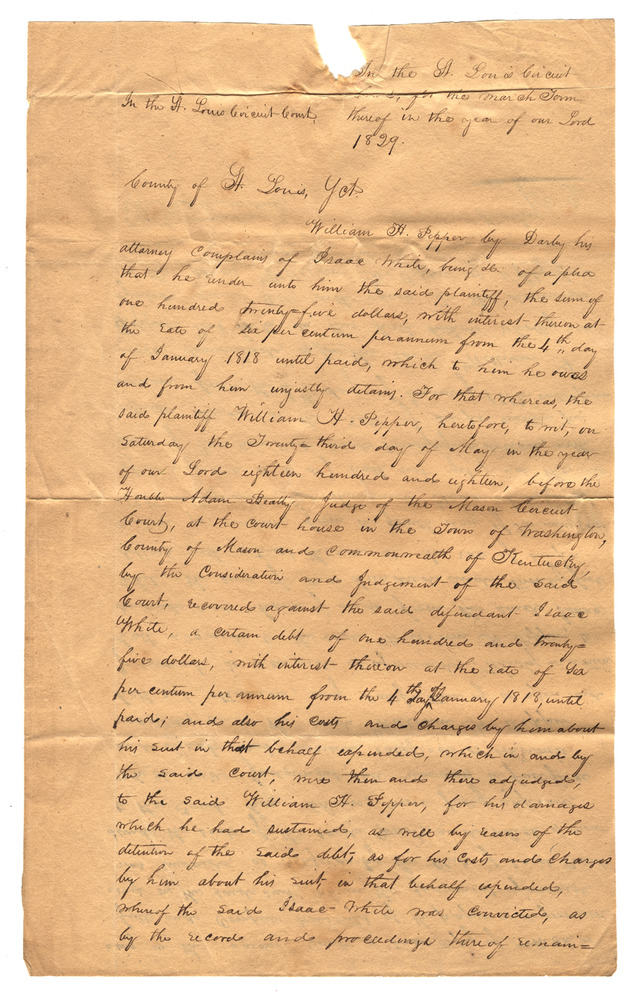 In the St. Louis Circuit
for the March Term
In the St. Louis Circuit Court,
thereof in the year of our Lord
1829.
County of St. Louis, Yct
William H. Pepper by Darby his
attorney Complains of Isaac White, being &c of a plea
that he render unto him the said plaintiff, the sum of
one hundred twenty=five dollars, with interest thereon at
the rate of six per centum per annum from the 4th day
of January 1818 until paid, which to him he owes
and from him unjustly detains. For that whereas, the
said plaintiff William H. Pepper, heretofore, to wit, on
Saturday the Twenty=third day of May in the year
of our Lord eighteen hundred and eighteen, before the
Honble Adam Beatty Judge of the Mason Circuit
Court, at the court house in the Town of Washington,
County of Mason and Commonwealth of Kentucky,
by the Consideration and Judgement of the said
Court, recovered against the said defendant Isaac
White, a certain debt of one hundred and twenty=
five dollars, with interest thereon at the rate of six
per centum per annum from the 4th day of January 1818, until
paid; and also his costs and charges by him about
his suit in that behalf expended, which in and by
the said Court, were then and there adjudged,
to the said William H. Pepper, for his damages
which he had sustained, as well by reason of the
detention of the said debt, as for his costs and charges
by him about his suit, in that behalf expended,
whereof the said Isaac White was convicted, as
by the record and proceedings thereof remain=